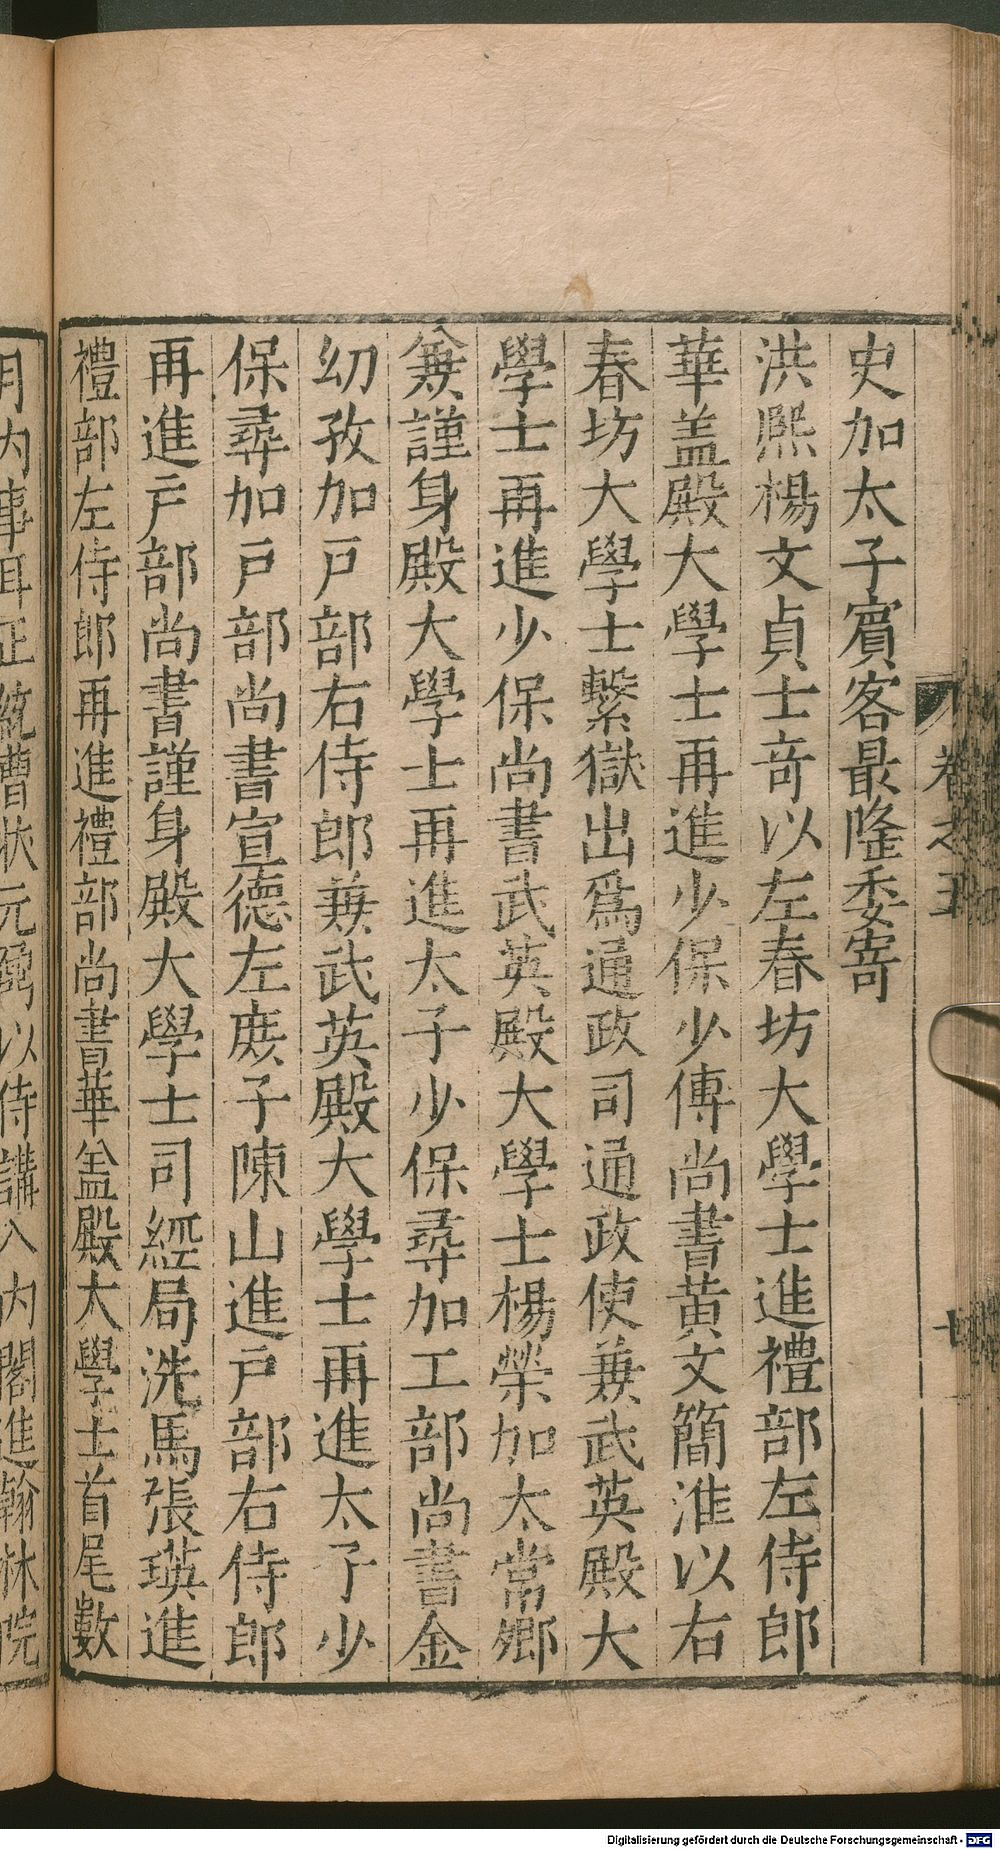 卷之五
十
史加太子賓客最隆委寄
洪熈楊文貞士奇以左春坊大學士進禮部左侍郎
華盖殿大學士再進少保少傅尚書黄文簡淮以右
春坊大學士繫獄出爲通政司通政使兼武英殿大
學士再進少保尚書武英殿大學士楊榮加太常卿
兼謹身殿大學士再進太子少保尋加工部尚書金
幼孜加戸部右侍郎兼武英殿大學士再進太子少
保尋加戸部尚書宣德左庶子陳山進戸部右侍郎
再進戸部尚書謹身殿大學士司經局洗馬張瑛進
禮部左侍郎再進禮部尚書華盖殿大學士首尾數
月内事耳正統曹狀元鼐以侍講入内閣進翰林院
Digitalisierung gefördert durch die Deutsche Forschungsgemeinschaft - DFG